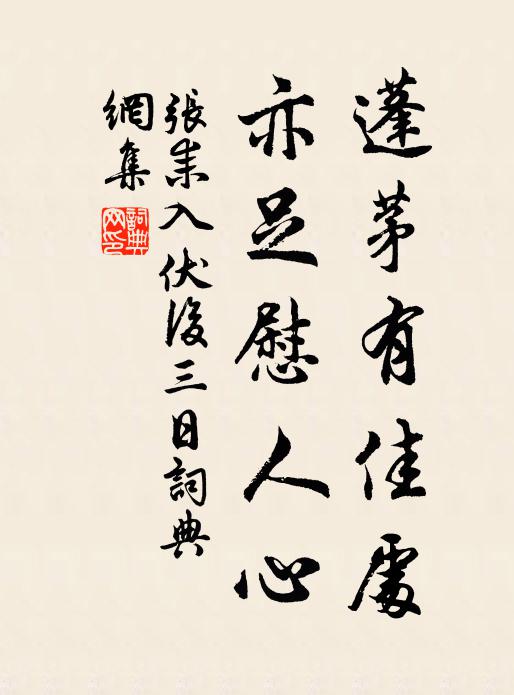 蓬茅有佳處
亦足慰人心
張耒入伏後三日詞典
網集
詞典网印